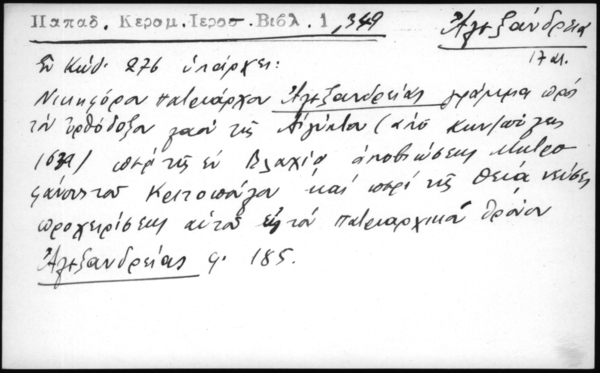 Παπαδ. Κεραμ. Ιεροσ. Βιβλ. 1, 349
Ἀλεξάνδρεια
17 αι.
Ἐν Κώδ. 276 ὑπάρχει:
Νικηφόρου πατριάρχου Ἀλεξανδρείας γράμμα πρὸς
τὸν ὀρθόδοξον λαὸν τῆς Αἰγύπτου (ἀπὸ Κων/πόλεως
1639) περὶ τῆς ἐν Βλαχίᾳ ἀποβιώσεως Μητρο
φάνους τοῦ Κριτοπούλου καὶ περὶ τῆς θείᾳ νεύσει
προχειρίσεως αὐτοῦ εἰς τὸν πατριαρχικὸν θρόνον
Ἀλεξανδρείας φ. 185.